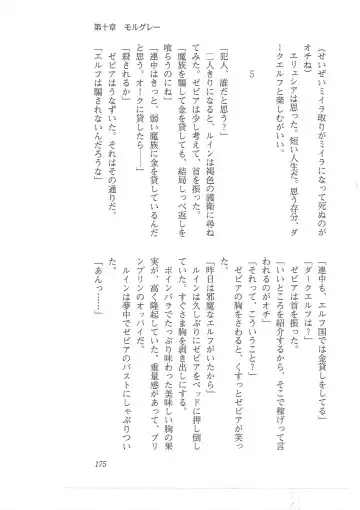 第十章　モルグレー
(せいぜいミイラ取りがミイラになって死ぬのが
オチね)
エリュシアは思った。短い人生だ。思う存分、ダ
ークエルフと楽しむがいい。
5
「犯人、誰だと思う？」
二人きりになると、ルインは褐色の護衛に尋ね
てみた。ゼビアは少し考えて、首を振った。
「魔族を騙して金を貸しても、結局しっぺ返しを
喰らうのにね」
「連中はきっと、弱い魔族に金を貸しているんだ
と思う。オークに貸したら――」
「殺されるか」
ゼビアはうなずいた。それはその通りだ。
「エルフは騙されないんだろうな」
「連中も、エルフ国では金貸しをしてる」
「ダークエルフは？」
ゼビアは首を振った。
「いいところを紹介するから、そこで稼げって言
われるのがオチ」
「それって、こういうこと？」
ゼビアの胸をさわると、くすっとゼビアが笑っ
た。
「昨日は邪魔なエルフがいたから」
ルインは久しぶりにゼビアをベッドに押し倒し
ていた。すぐさま胸を剥き出しにする。
ボインバラでたっぷり味わった美味しい胸の果
実が、高く隆起していた。重量感があって、プリ
ンプリンのオッパイだ。
ルインは夢中でゼビアのバストにしゃぶりつい
た。
「あんっ……」
175